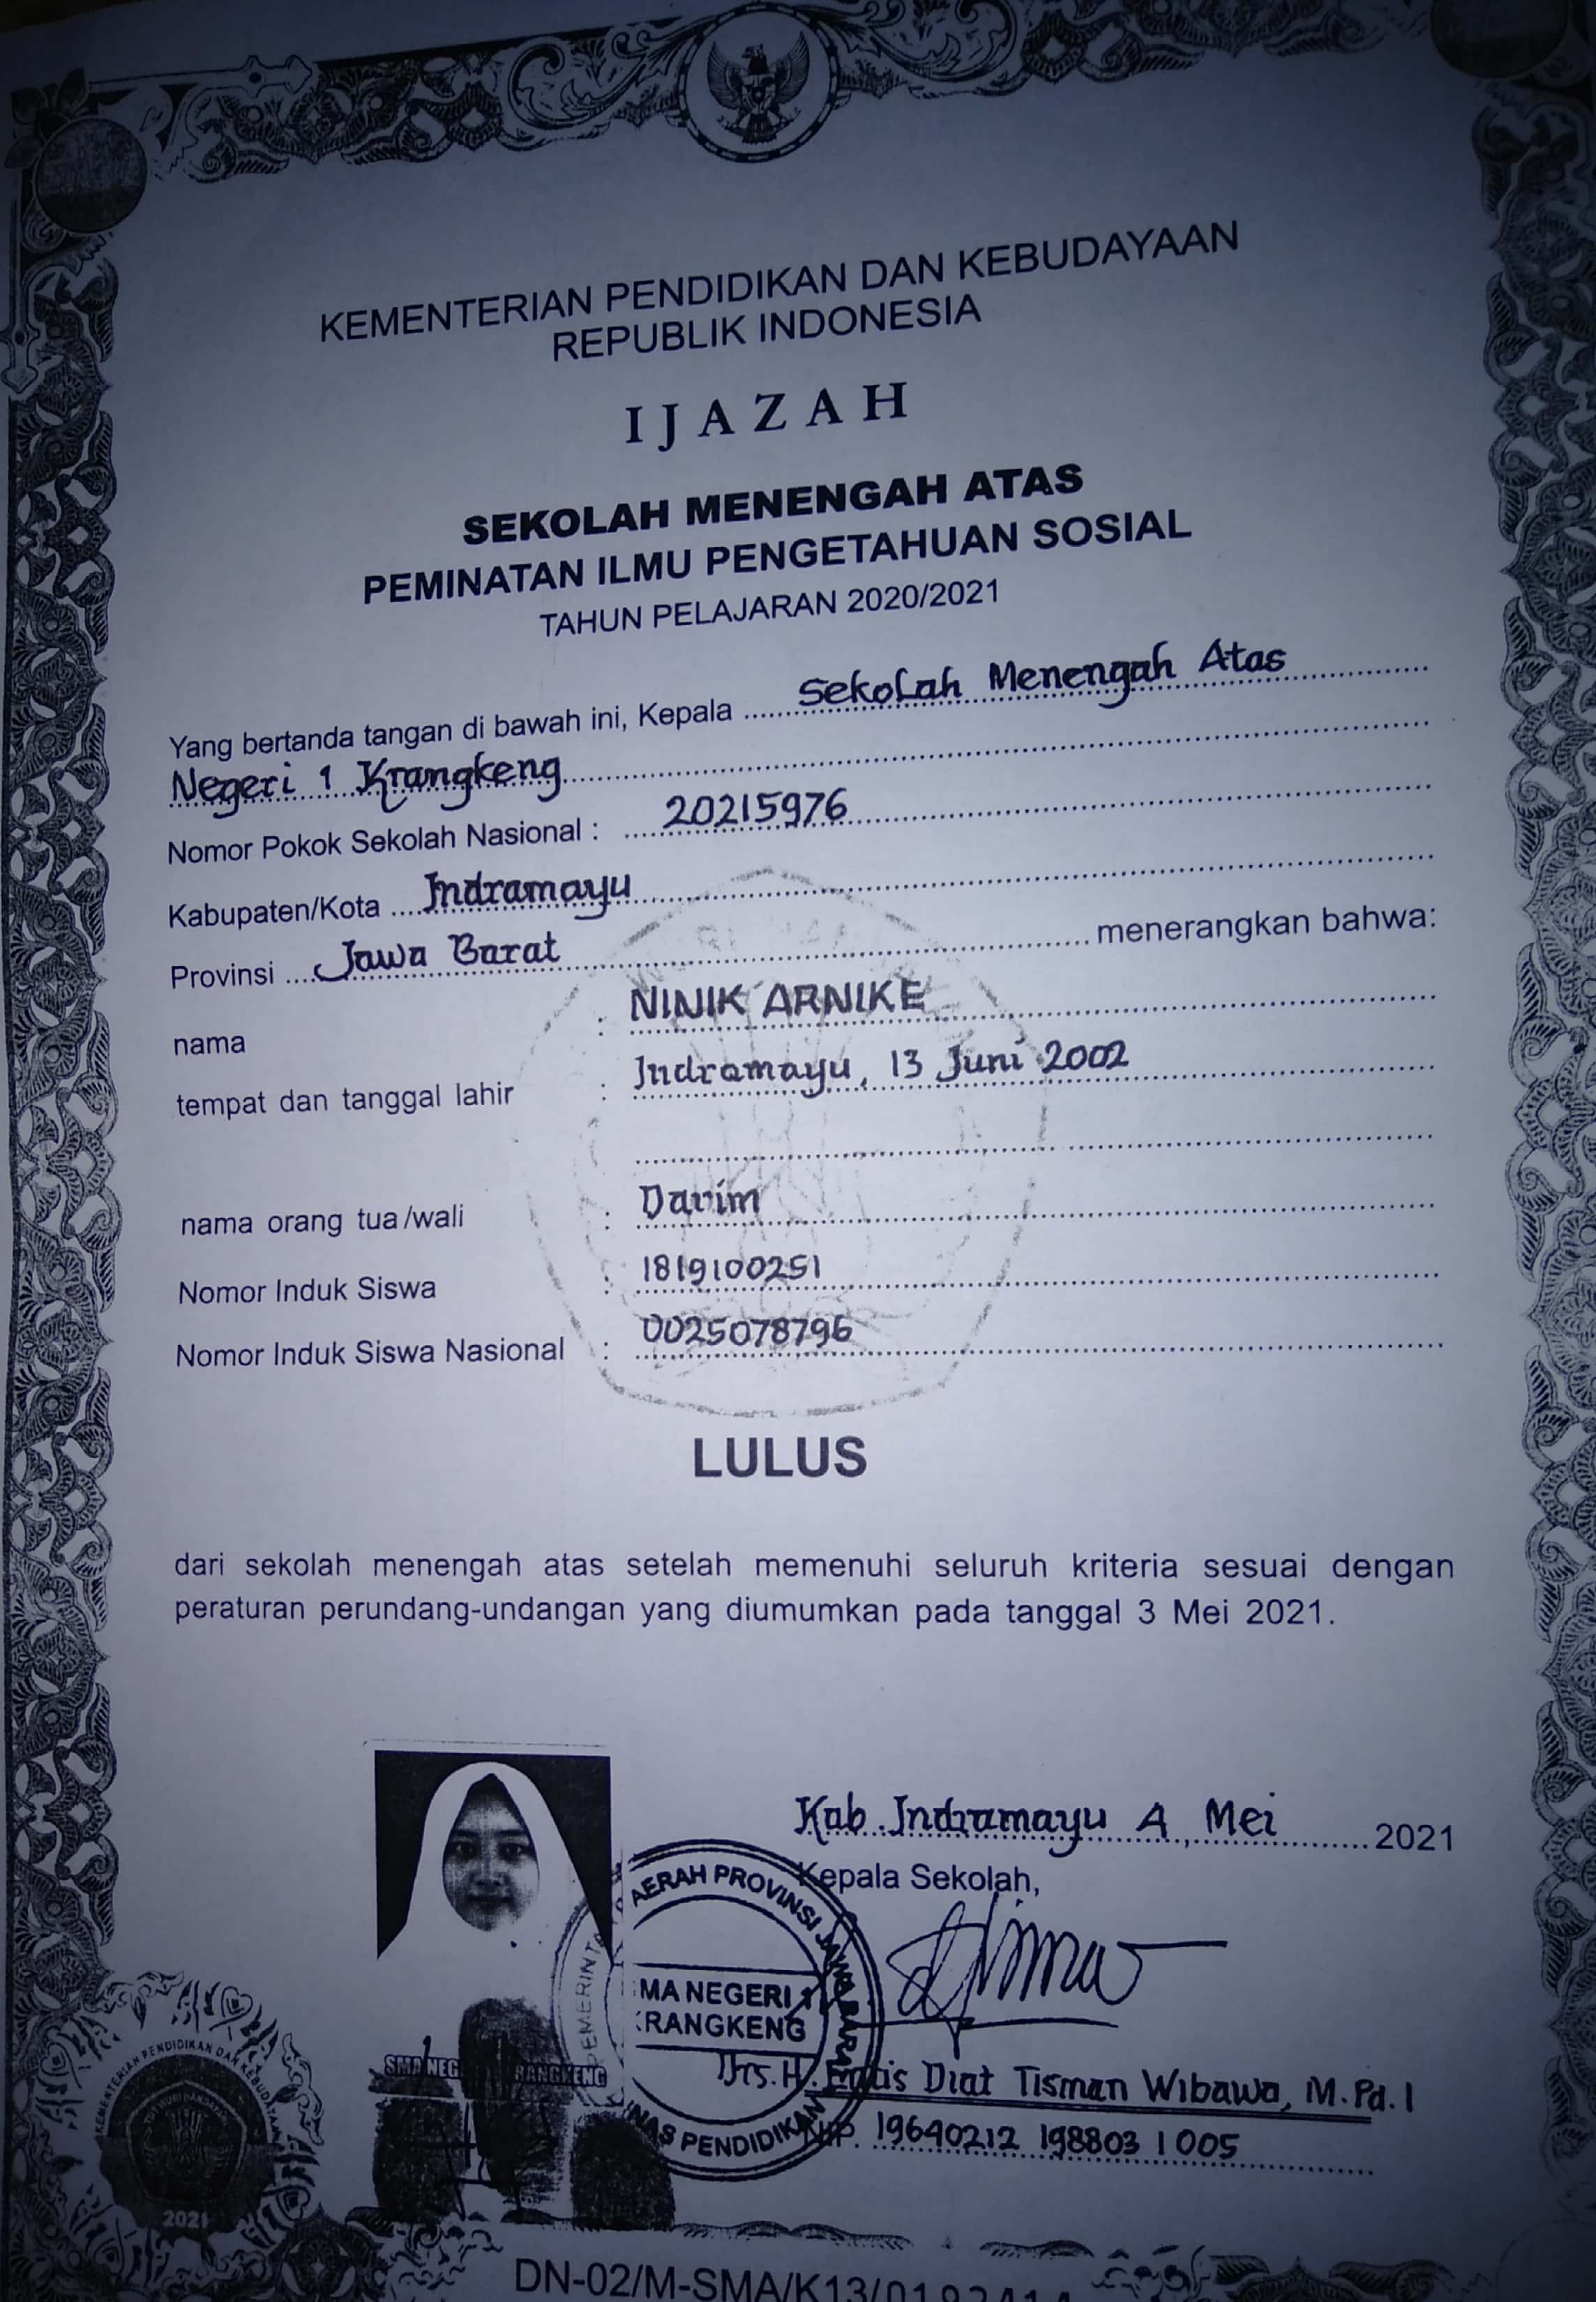 KEMENTERIAN PENDIDIKAN DAN KEBUDAYAAN
REPUBLIK INDONESIA
IJAZAH
SEKOLAH MENENGAH ATAS
PEMINATAN ILMU PENGETAHUAN SOSIAL
TAHUN PELAJARAN 2020/2021
Yang bertanda tangan di bawah ini, Kepala Sekolah Menengah Atas
Negeri 1 Krangkeng
Nomor Pokok Sekolah Nasional : 20215976
Kabupaten/Kota Indramayu
Provinsi Jawa Barat menerangkan bahwa:
nama : NINIK ARNIKE
tempat dan tanggal lahir : Indramayu, 13 Juni 2002
nama orang tua/wali : Darim
Nomor Induk Siswa : 1819100251
Nomor Induk Siswa Nasional : 0025078796
LULUS
dari sekolah menengah atas setelah memenuhi seluruh kriteria sesuai dengan
peraturan perundang-undangan yang diumumkan pada tanggal 3 Mei 2021.
Kab. Indramayu 4 Mei 2021
Kepala Sekolah,
AERAH PROVINSI JAWA BARA
MA NEGERI 1
KRANGKENG
NAS PENDIDIKAN
Drs. H. Entis Diat Tisman Wibawa, M.Pd.I
NIP. 19640212 198803 1 005
KEMENTERIAN PENDIDIKAN DAN KEBUDAYAAN
2021
DN-02/M-SMA/K13/